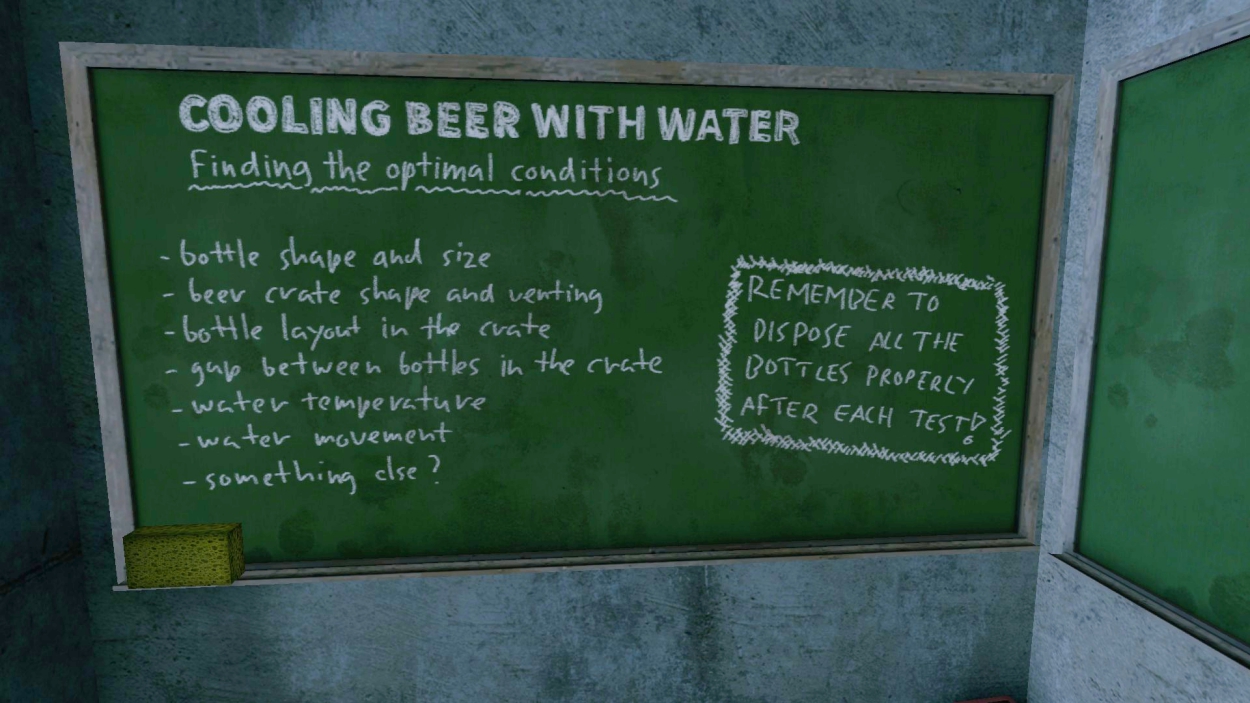 COOLING BEER WITH WATER
Finding the optimal conditions
- bottle shape and size
- beer crate shape and venting
- bottle layout in the crate
- gap between bottles in the crate
- water temperature
- water movement
- something else?
REMEMBER TO
DISPOSE ALL THE
BOTTLES PROPERLY
AFTER EACH TEST!